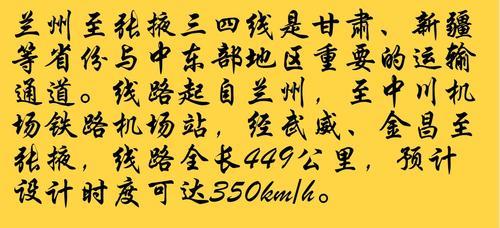 兰州至张掖三四线是甘肃、新疆
等省份与中东部地区重要的运输
通道。线路起自兰州，至中川机
场铁路机场站，经武威、金昌至
张掖，线路全长449公里，预计
设计时度可达350km/h。